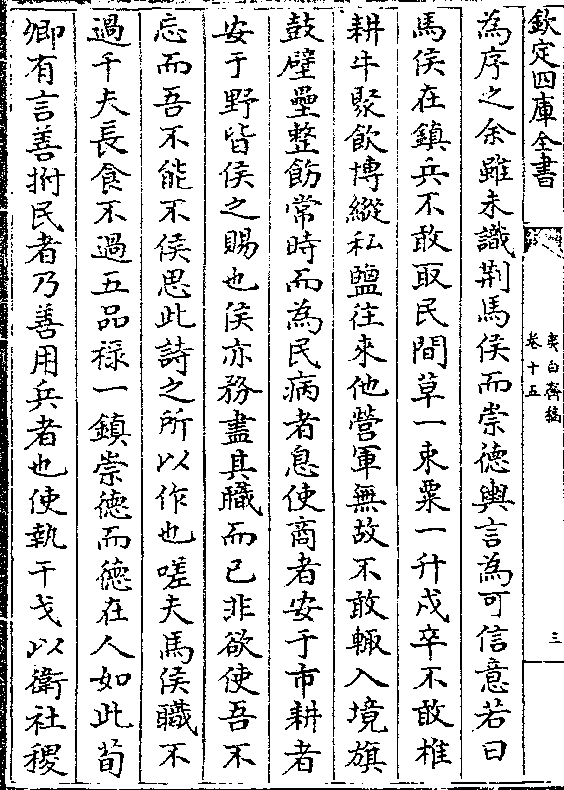 欽定四庫全書
夷白齋稿
卷十五
三
為序之余雖未識荆馬侯而崇德輿言為可信意若曰
馬侯在鎮兵不敢取民間草一束粟一升戍卒不敢椎
耕牛聚飲博縱私鹽往來他營軍無故不敢輙入境旗
鼓壁壘整飭常時而為民病者息使商者安于市耕者
安于野皆侯之賜也侯亦務盡其職而已非欲使吾不
忘而吾不能不侯思此詩之所以作也嗟夫馬侯職不
過千夫長食不過五品禄一鎮崇德而德在人如此荀
卿有言善拊民者乃善用兵者也使執干戈以衛社稷